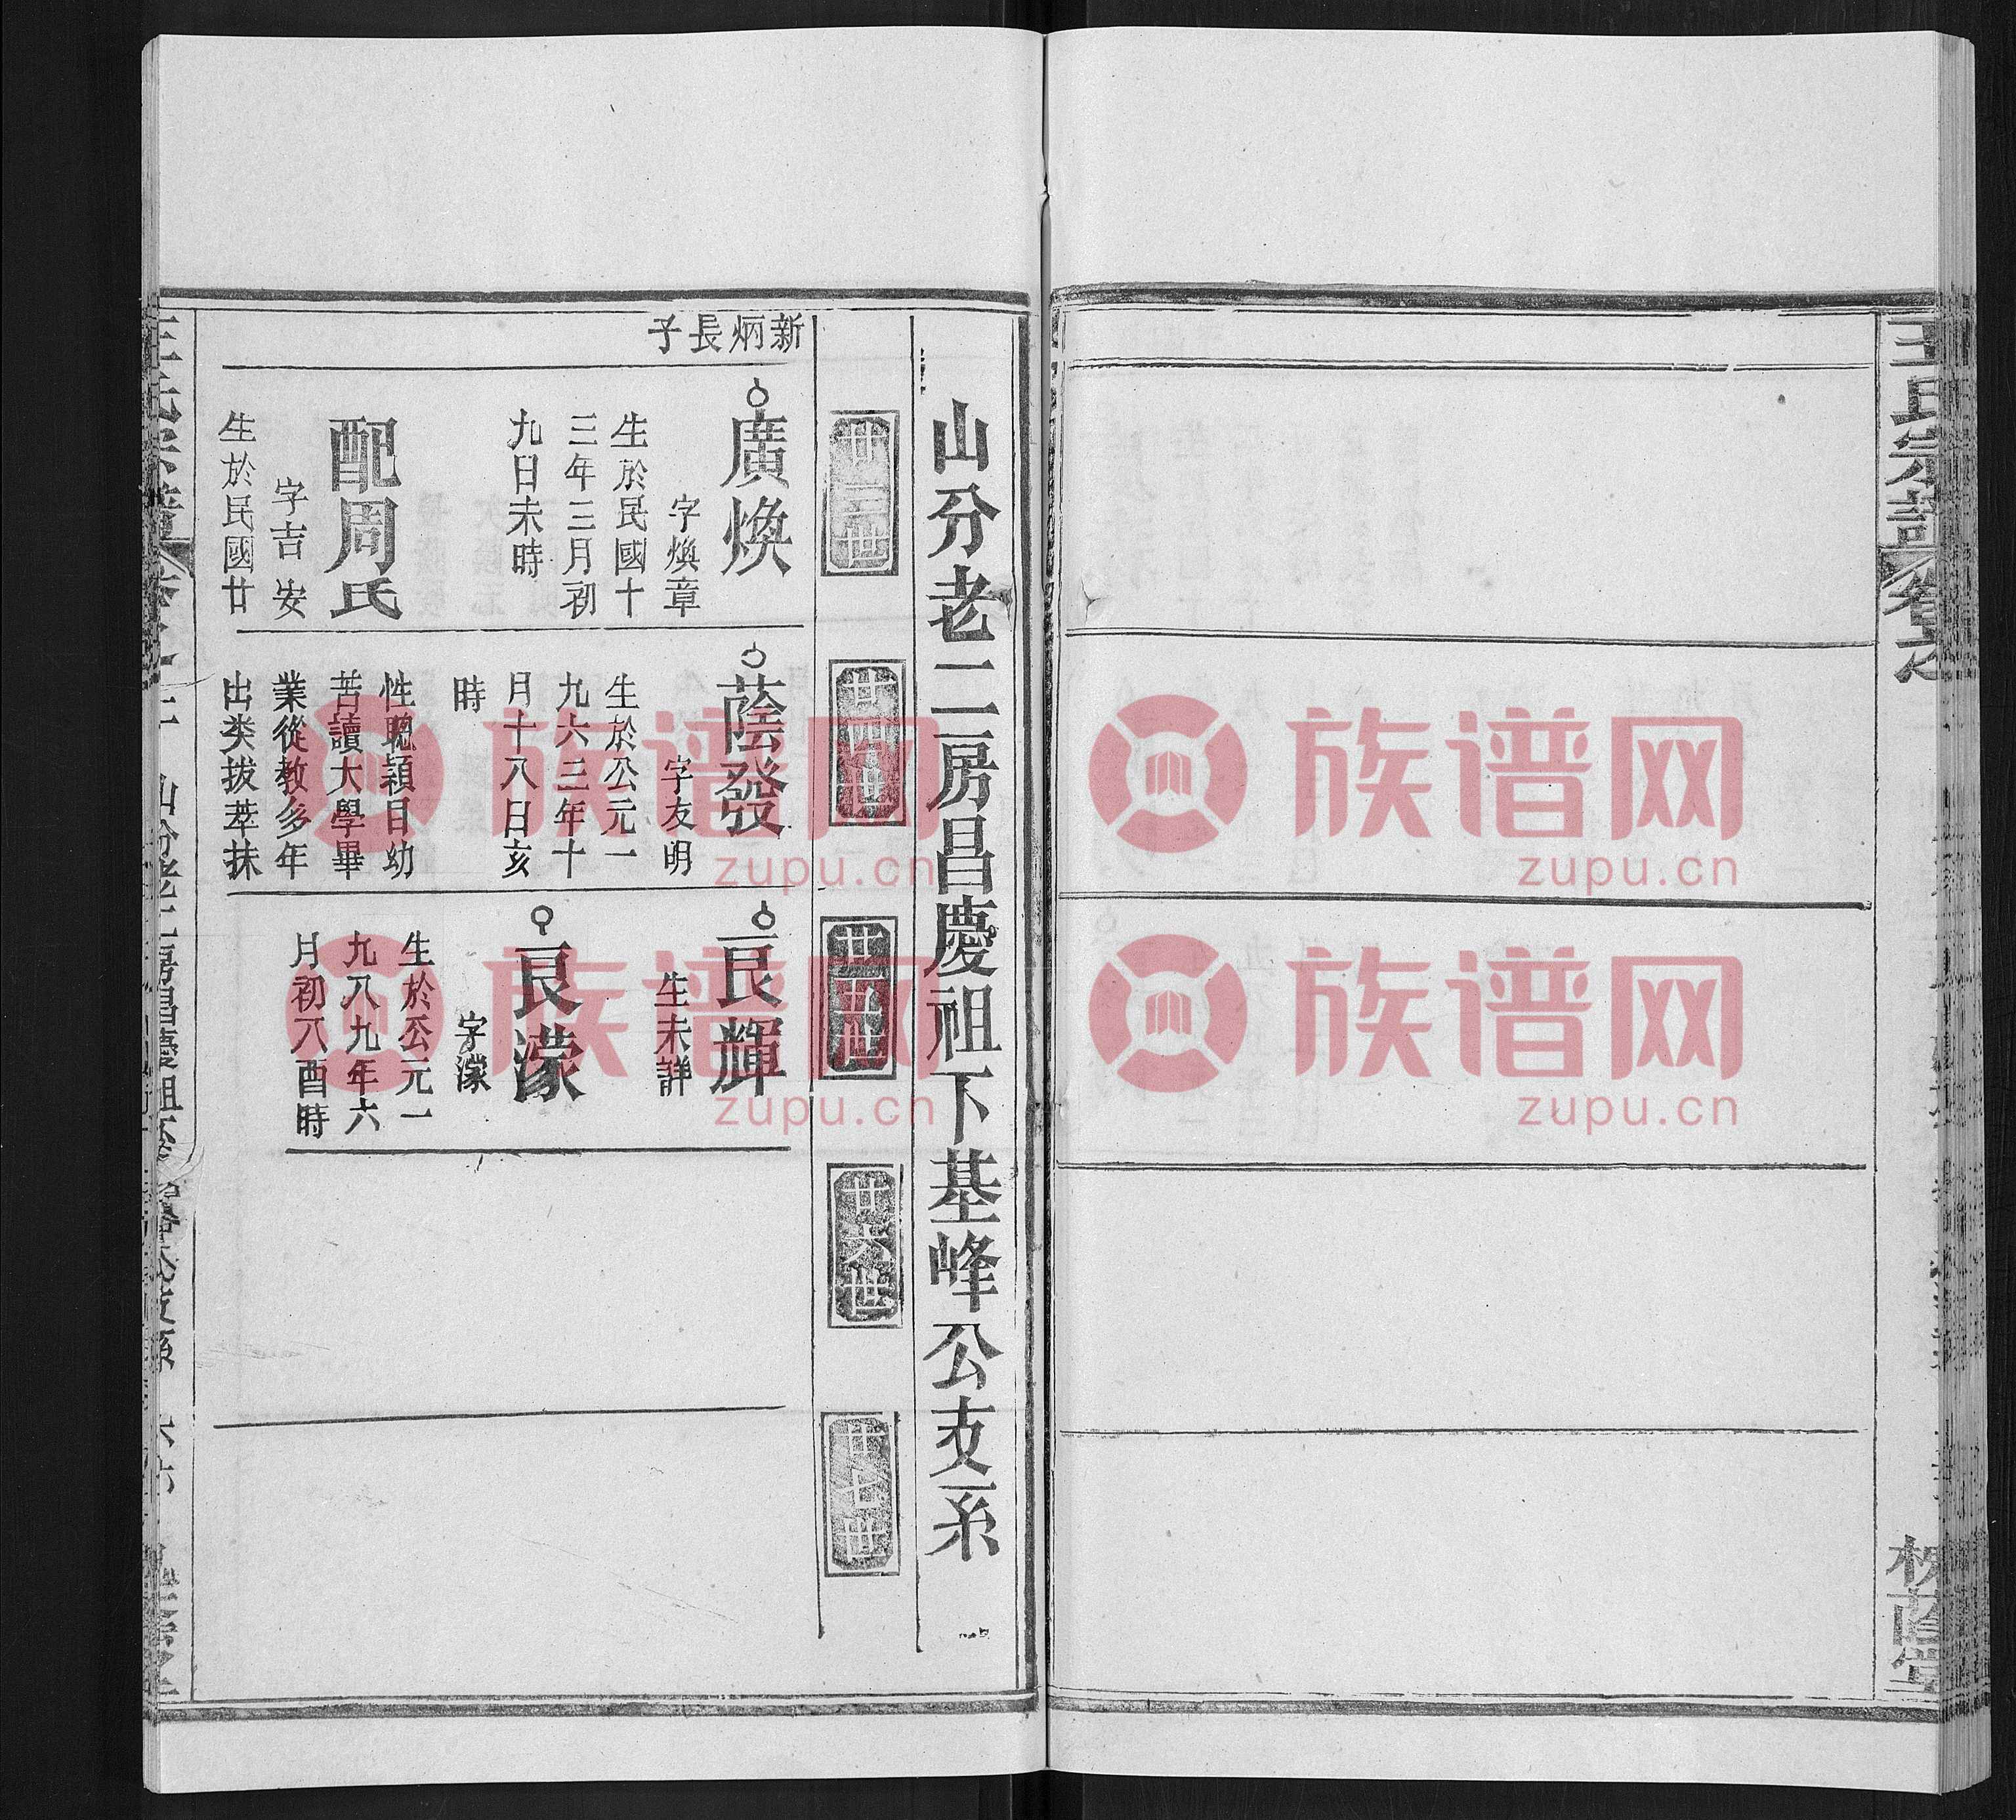 王氏宗譜
卷之
槐蔭堂
山分老二房昌慶祖下基峰公支系
廿三世
廿四世
廿五世
廿六世
廿七世
新炳長子
廣煥
字煥章
生於民國十
三年三月初
九日未時
配周氏
字吉安
生於民國廿
蔭發
字友明
生於公元一
九六三年十
月十八日亥
時
性聰穎目幼
苦讀大學畢
業從教多年
出类拔萃抹
良輝
生未詳
良濛
字濛
生於公元一
九八九年六
月初八酉時
族谱网
zupu.cn
族谱网
zupu.cn
族谱网
zupu.cn
族谱网
zupu.cn